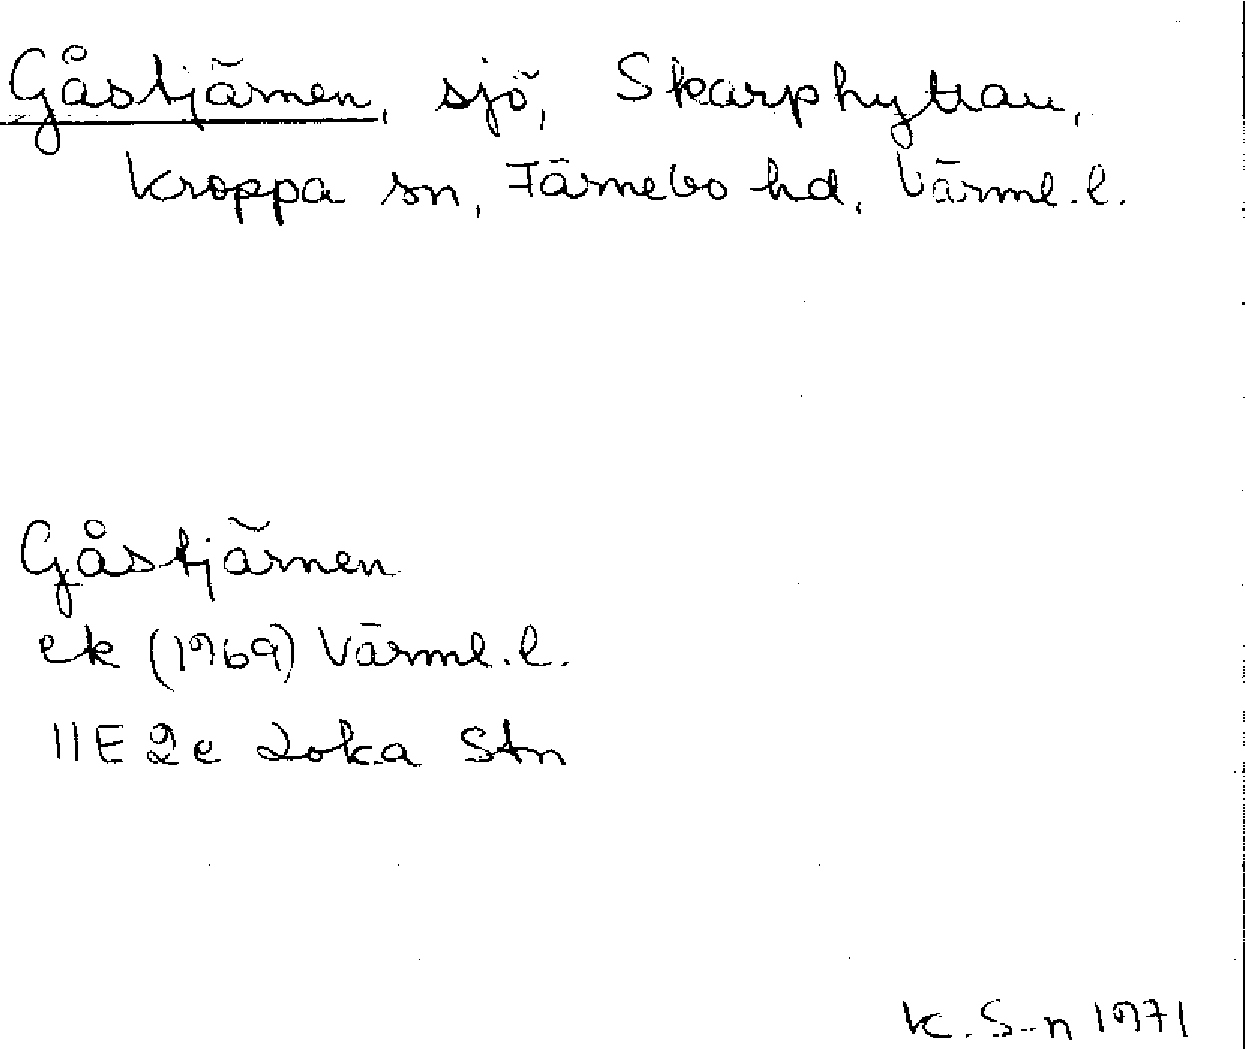 Gåstjärnen, sjö, Skarphyttan,
Kroppa sn, Färnebo hd, Värml. l.
Gåstjärnen
ek (1969) Värml. l.
11E 2e Loka Stn
K. S-n 1971